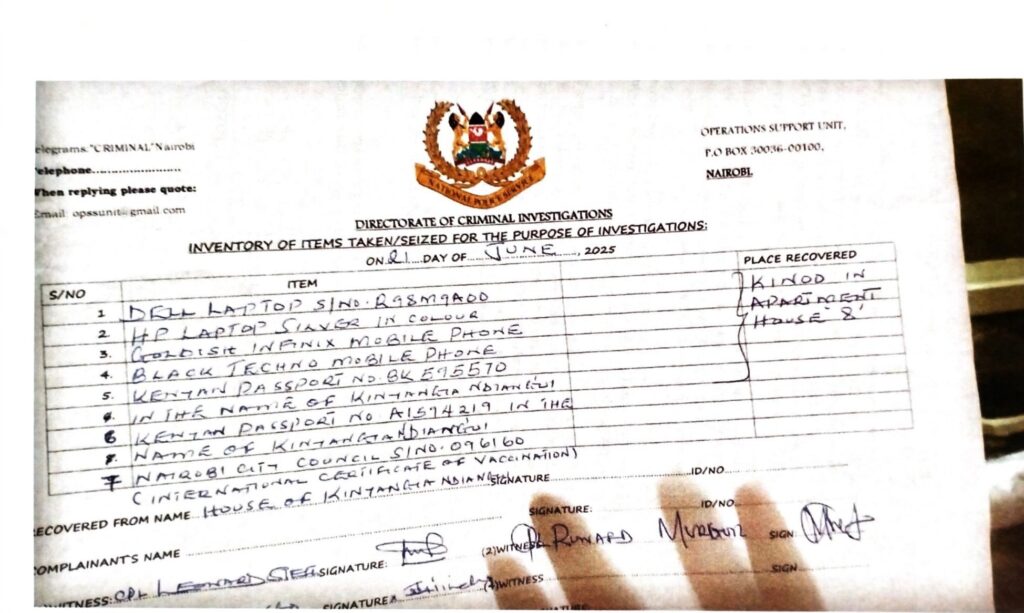 elegrams."CRIMINAL"Nairobi
elephone........................
When replying please quote:
Email: opssunit@gmail.com
NATIONAL POLICE SERVICE
OPERATIONS SUPPORT UNIT,
P.O BOX 30036-00100,
NAIROBI.
DIRECTORATE OF CRIMINAL INVESTIGATIONS
INVENTORY OF ITEMS TAKEN/SEIZED FOR THE PURPOSE OF INVESTIGATIONS:
ON 21 DAY OF JUNE, 2025
S/NO ITEM PLACE RECOVERED
1 DELL LAPTOP S/NO. R98M9A00
2 HP LAPTOP SILVER IN COLOUR
3. GOLDISH INFINIX MOBILE PHONE
4. BLACK TECHNO MOBILE PHONE
5. KENYAN PASSPORT NO. BK 595570
IN THE NAME OF KINYANGIA NDIANGUI
6 KENYAN PASSPORT NO A1574219 IN THE
8. NAME OF KINYANGIA NDIANGUI
7 NAIROBI CITY COUNCIL S/NO. 096160
(INTERNATIONAL CERTIFICATE OF VACCINATION)
KINOD IN
APARTMENT
HOUSE '8'
RECOVERED FROM NAME HOUSE OF KINYANGIA NDIANGUI SIGNATURE ID/NO
COMPLAINANT'S NAME SIGNATURE: ID/NO
WITNESS: CPL LEONARD SIGNATURE: (2)WITNESS SIGN
SIGNATURE WITNESS SIGN